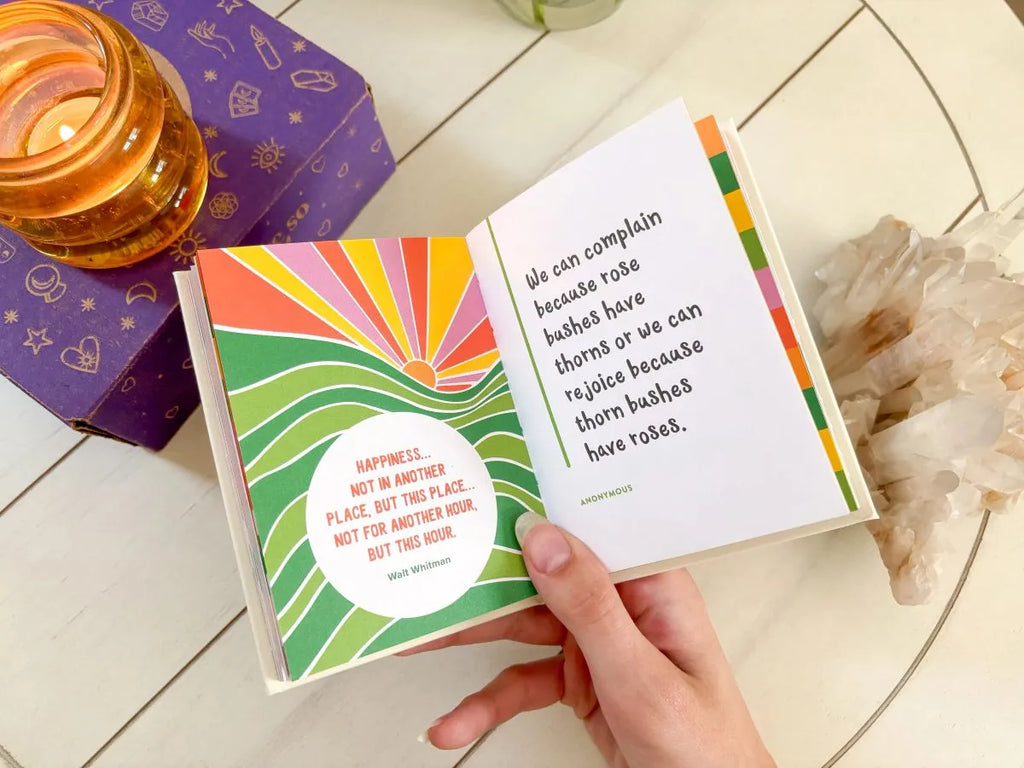 HAPPINESS...
NOT IN ANOTHER
PLACE, BUT THIS PLACE...
NOT FOR ANOTHER HOUR,
BUT THIS HOUR.
Walt Whitman
We can complain
because rose
bushes have
thorns or we can
rejoice because
thorn bushes
have roses.
ANONYMOUS